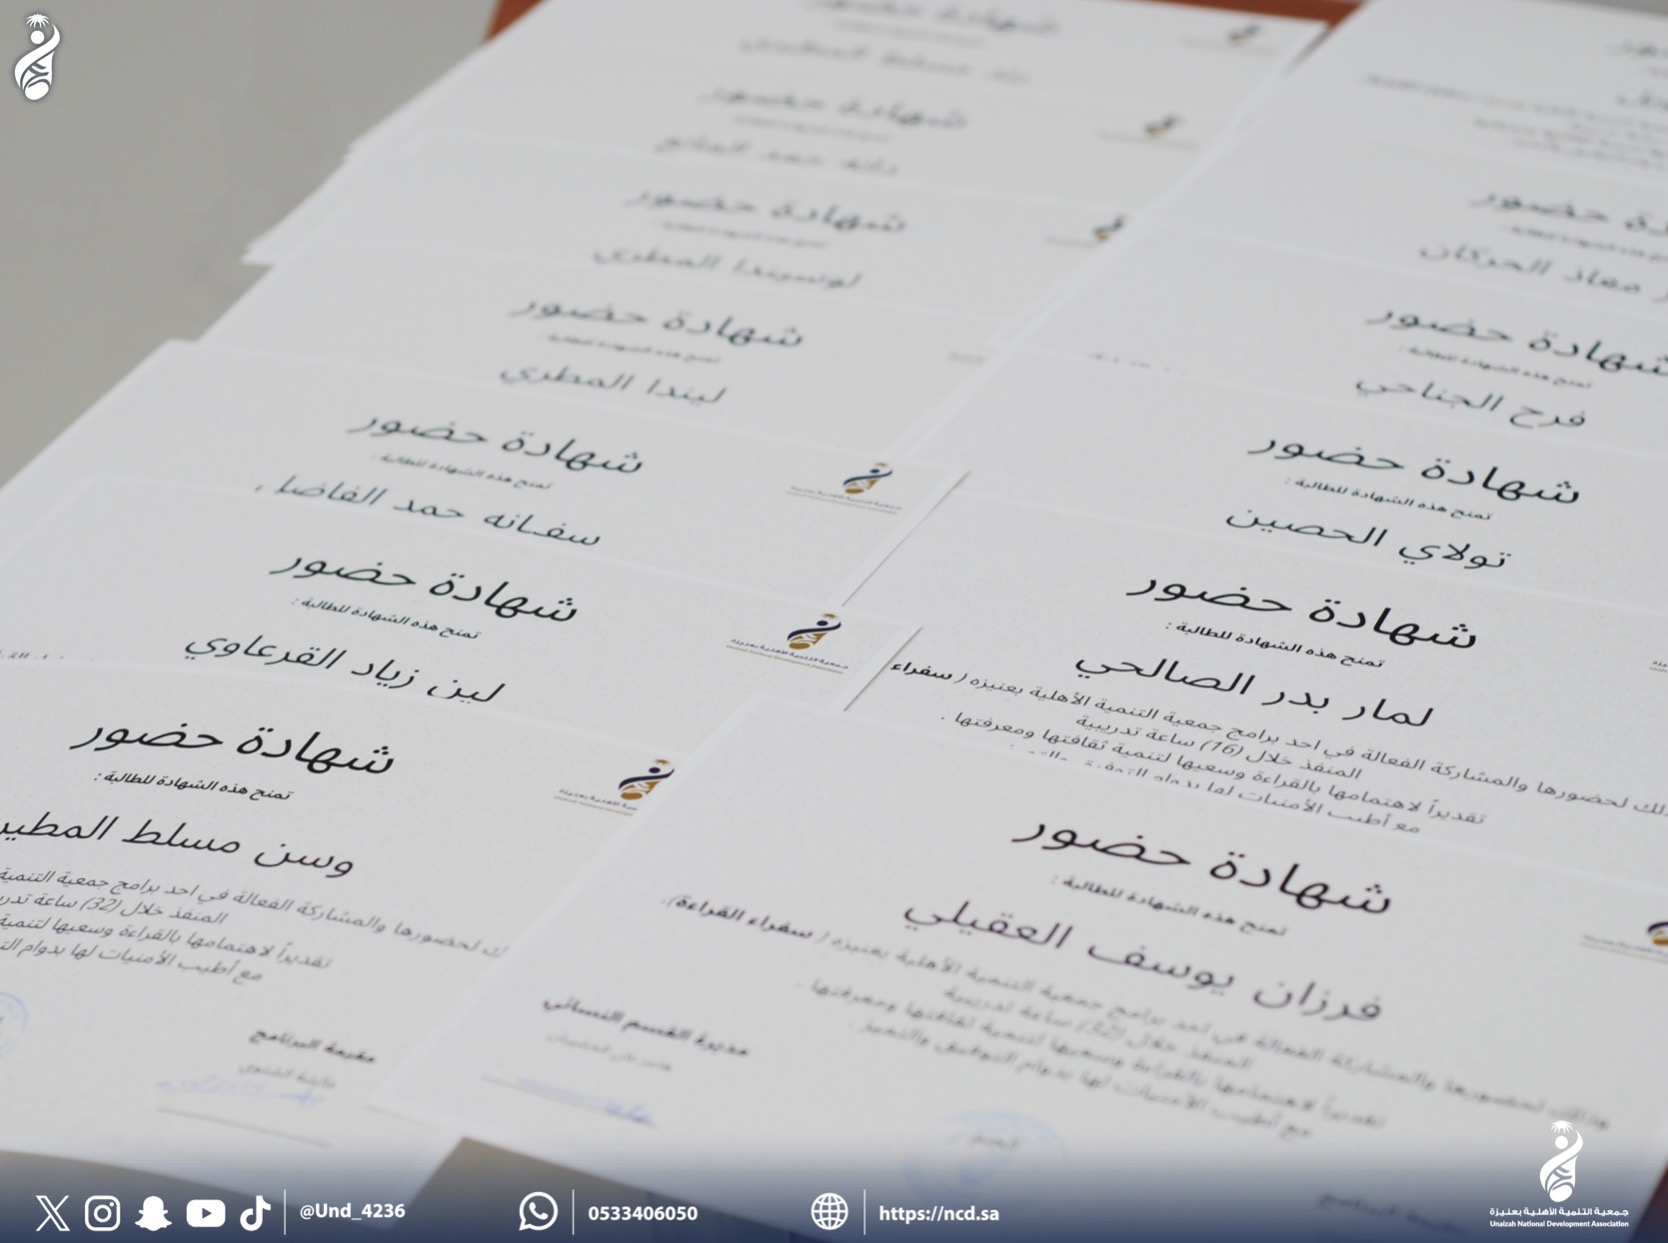 شهادة حضور
شهادة حضور
شهادة حضور
لوسيندا المطري
شهادة حضور
تمنح هذه الشهادة للطالبة :
ليندا المطري
شهادة حضور
تمنح هذه الشهادة للطالبة :
سفانه حمد الفاضل
جمعية التنمية الأهلية بعنيزة
شهادة حضور
تمنح هذه الشهادة للطالبة :
لين زياد القرعاوي
جمعية التنمية الأهلية بعنيزة
Unaizah National Development Association
شهادة حضور
تمنح هذه الشهادة للطالبة :
وسن مسلط
لحضورها والمشاركة الفعالة في احد برامج جمعية التنمية
المنفذ خلال (32) ساعة
تقديراً لاهتمامها بالقراءة وسعيها لتنمية
مع أطيب الأمنيات لها بدوام
مقيمة البرنامج
حضور
معاذ الحركان
شهادة حضور
تمنح هذه الشهادة للطالبة :
فرح الجناحي
شهادة حضور
تمنح هذه الشهادة للطالبة :
تولاي الحصين
شهادة حضور
تمنح هذه الشهادة للطالبة :
لمار بدر الصالحي
لحضورها والمشاركة الفعالة في احد برامج جمعية التنمية الأهلية بعنيزه ( سفراء
المنفذ خلال (16) ساعة تدريبية
تقديراً لاهتمامها بالقراءة وسعيها لتنمية ثقافتها ومعرفتها .
مع أطيب الأمنيات لها بدوام التوفيق
شهادة حضور
تمنح هذه الشهادة للطالبة :
فرزان يوسف العقيلي
وذلك لحضورها والمشاركة الفعالة في احد برامج جمعية التنمية الأهلية بعنيزه ( سفراء القراءة).
المنفذ خلال (32) ساعة تدريبية
تقديراً لاهتمامها بالقراءة وسعيها لتنمية ثقافتها ومعرفتها .
مع أطيب الأمنيات لها بدوام التوفيق والتميز .
مديرة القسم النسائي
@Und_4236
0533406050
https://ncd.sa
جمعية التنمية الأهلية بعنيزة
Unaizah National Development Association